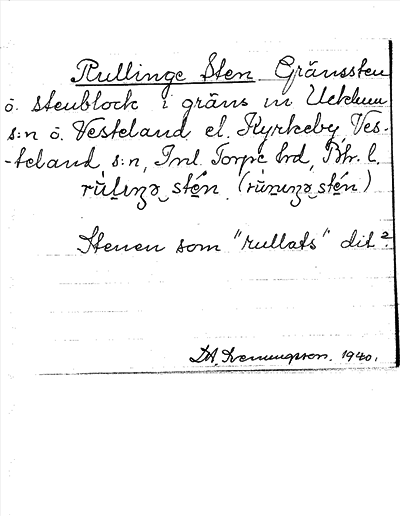 Rullinge Sten Gränssten
o. stenblock i gräns m Ucklum
s:n o. Vesteland el. Kyrkeby, Ves-
-teland s:n, Inl. Torpe hd, Bhr. l.
rùlıŋə stén (rùnıŋə stén)
Stenen som "rullats" dit?
D.A. Svenungsson. 1940.